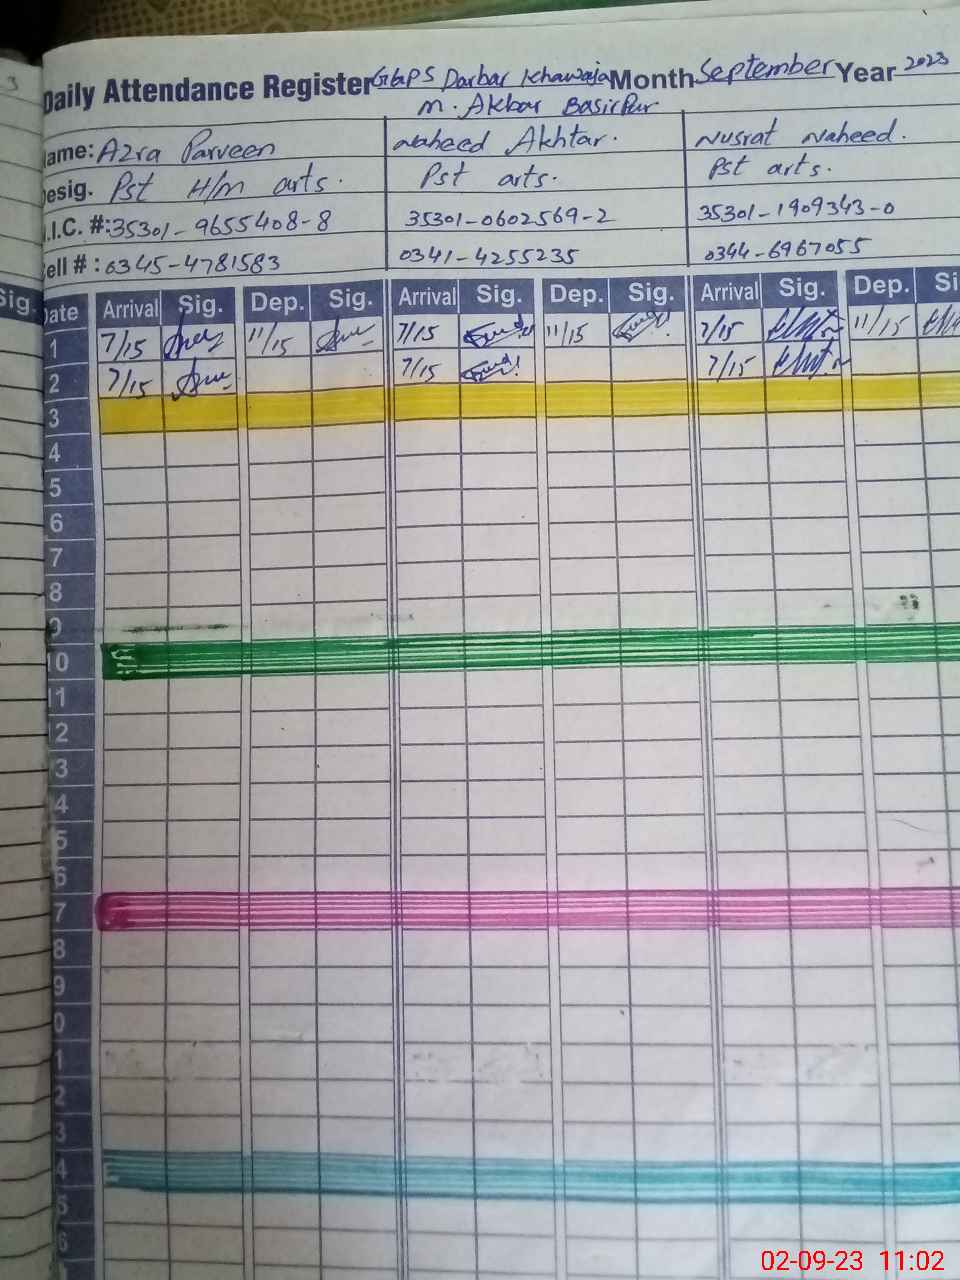 3
Daily Attendance Register GGPS Darbar Khawaja Month September Year 2023
M. Akbar BasirPur
ame: Azra Parveen Naheed Akhtar. Nusrat Naheed.
esig. Pst H/m arts. Pst arts. Pst arts.
.I.C. #: 35301-9655408-8 35301-0602569-2 35301-1909343-0
ell # : 0345-4781583 0341-4255235 0344-6967055
Sig. Date Arrival Sig. Dep. Sig. Arrival Sig. Dep. Sig. Arrival Sig. Dep. Si
1 7/15 11/15 7/15 11/15 7/15 11/15
2 7/15 7/15 7/15
3
4
5
6
7
8
9
10
11
12
3
4
5
6
7
8
9
0
1
2
3
4
5
6
02-09-23 11:02